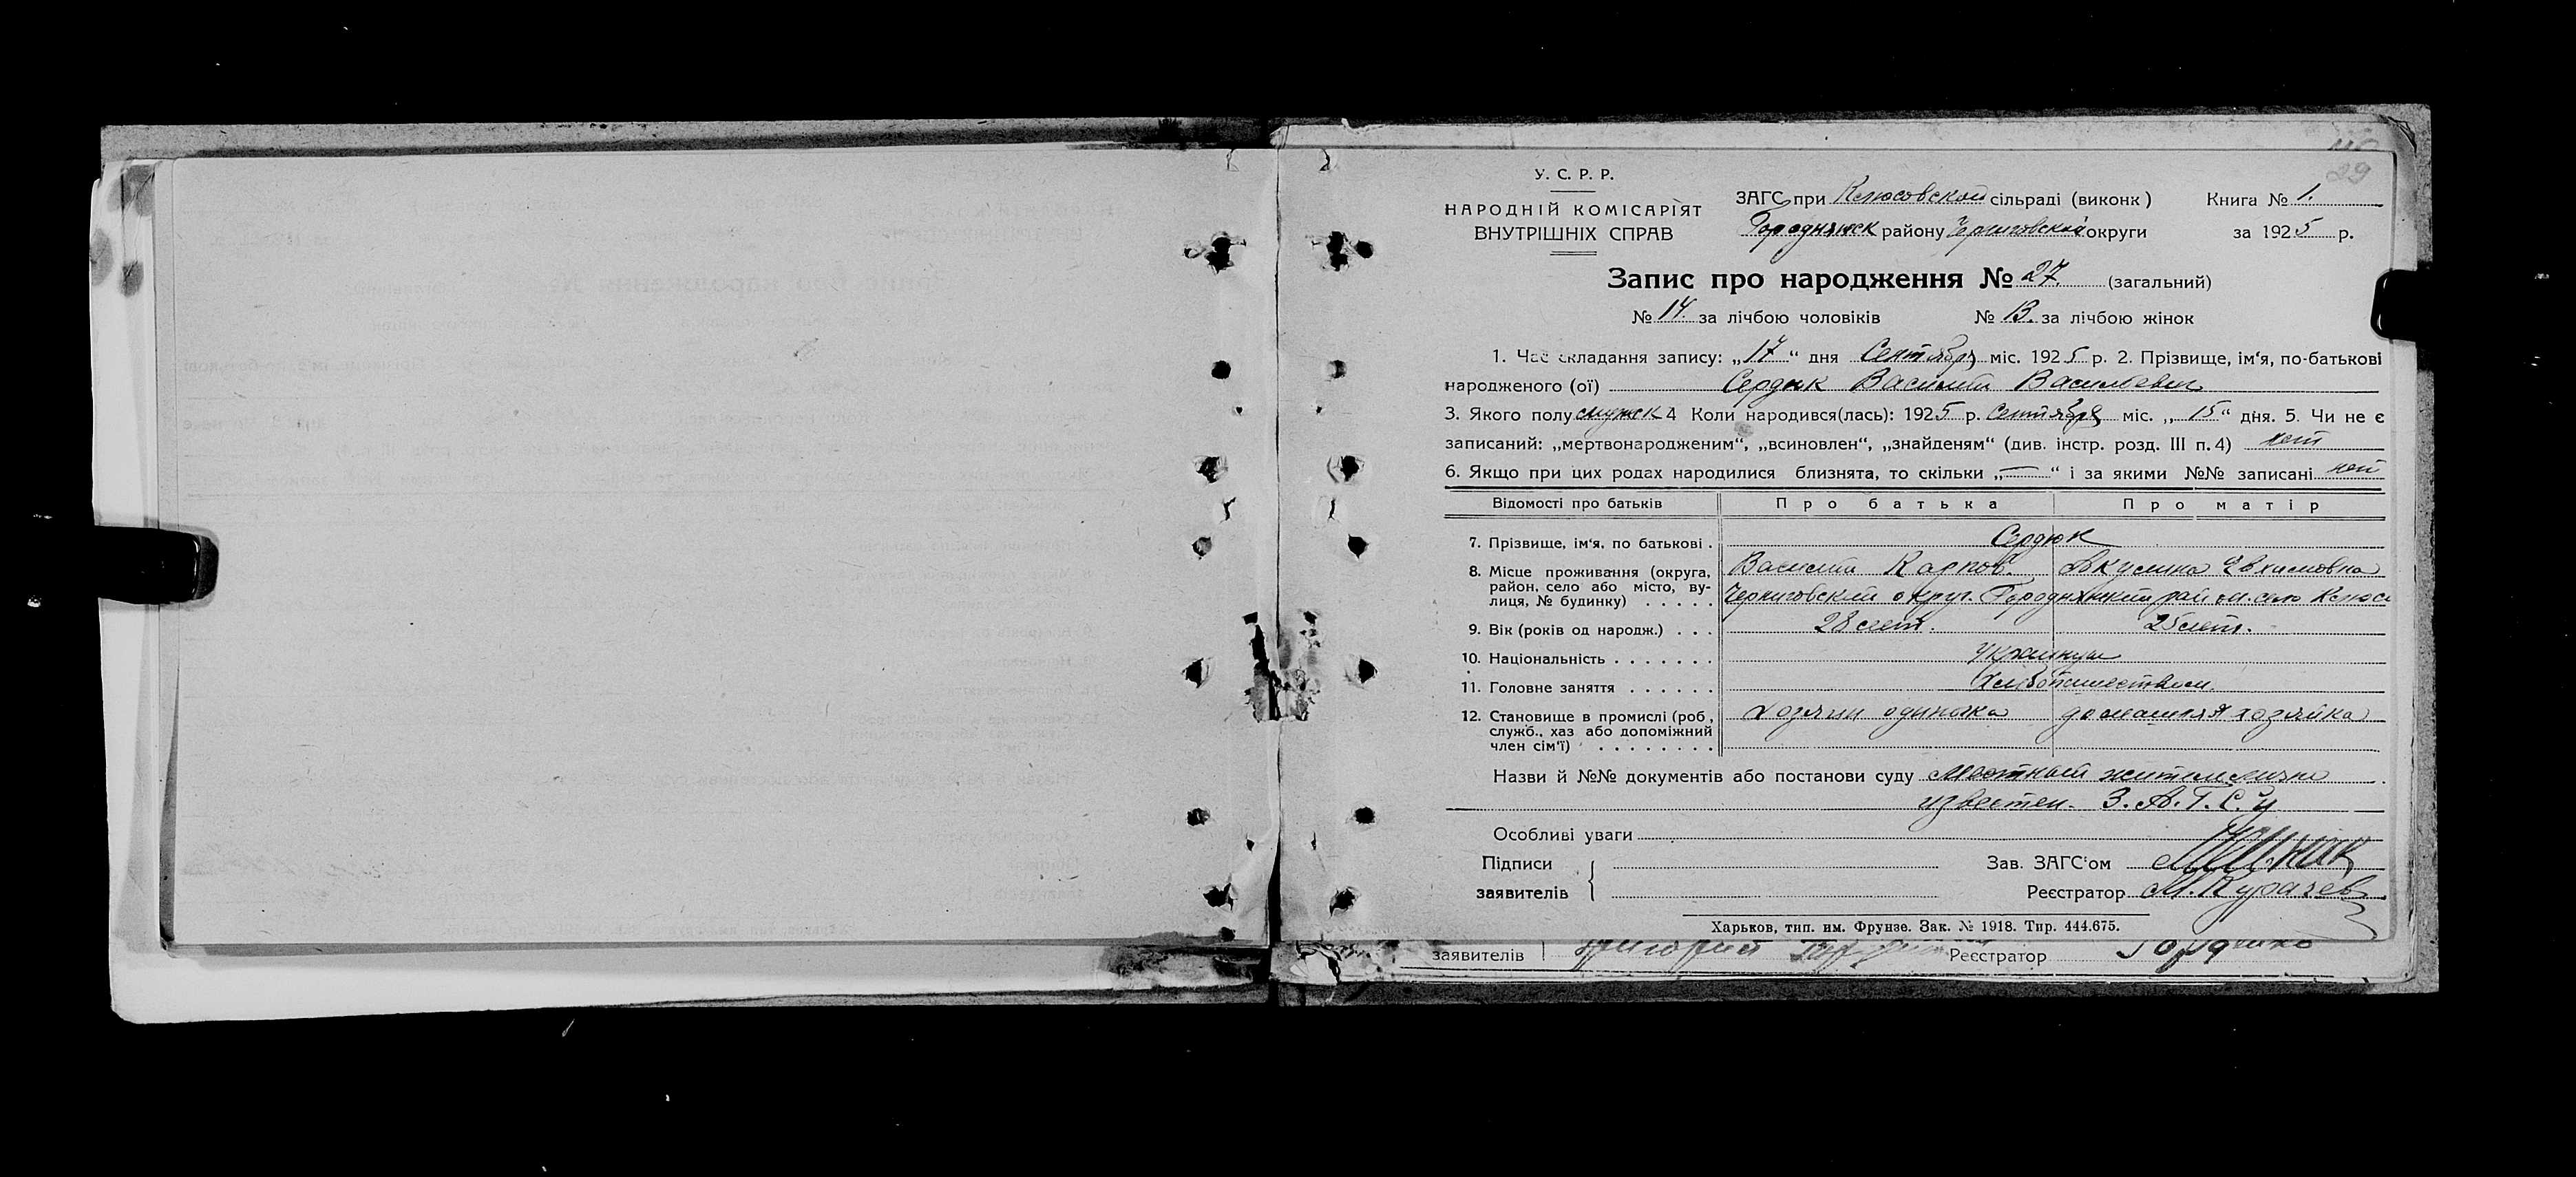 29
У. С. Р. Р.
НАРОДНІЙ КОМІСАРІЯТ
ВНУТРІШНІХ СПРАВ
ЗАГС при Клюсовской сільраді (виконк)
Городнянск району Черниговской округи
Книга № 1.
за 1925 р.
Запис про народження № 27. (загальний)
№ 14. за лічбою чоловіків № 13. за лічбою жінок
1. Час складання запису: „17“ дня Сентября міс. 1925 р. 2. Прізвище, ім‘я, по-батькові
народженого (ої) Сердюк Василий Васильевич
3. Якого полу мужск 4 Коли народився(лась): 1925 р. Сентября міс. „15“ дня. 5. Чи не є
записаний: „мертвонародженим“, „всиновлен“, „знайденям“ (див. інстр. розд. III п. 4) нет
6. Якщо при цих родах народилися близнята, то скільки „—“ і за якими №№ записані нет
Відомості про батьків Про батька Про матір
7. Прізвище, ім‘я, по батькові . Сердюк
8. Місце проживання (округа, Василий Карпов Акулина Евхимовна
район, село або місто, ву-
лиця, № будинку) . . . . . Черниговский округ. Городнянский район. село Клюсы
9. Вік (років од народж.) . . . 28 лет. 25 лет.
10. Національність . . . . . . . Украинцы
11. Головне заняття . . . . . . Хлебопашеством.
12. Становище в промислі (роб., Хозяин одиночка домашняя хозяйка
служб., хаз або допоміжний
член сім‘ї) . . . . . . . .
Назви й №№ документів або постанови суду Местный житель лично
известен З.А.Г.С.у
Особливі уваги
Підписи Зав. ЗАГС‘ом
заявителів Реєстратор М. Курачев
Харьков, тип. им. Фрунзе. Зак. № 1918. Тир. 444.675.
заявителів Григорий Реєстратор